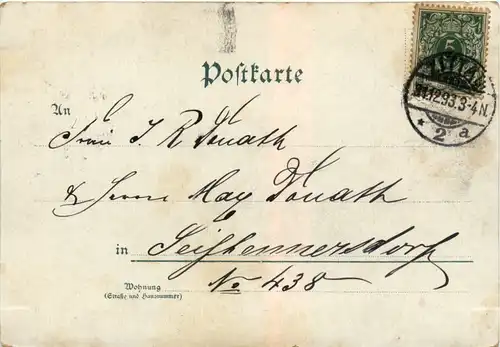 5
ZITTAU
31.12.93.3-4N.
* 2 a
Postkarte
An
Frau J. R. Donath
& Herrn Max Donath
in Seifhennersdorf
Wohnung
(Straße und Hausnummer)
No 438